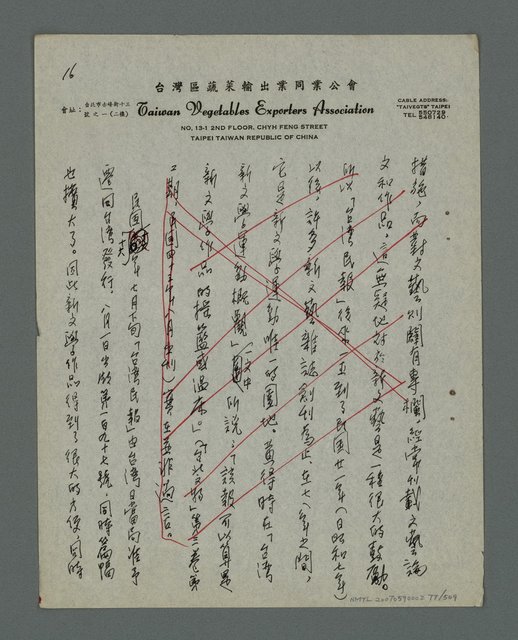 16
台灣區蔬菜輸出業同業公會
會址：台北市赤峰街十三號之一(二樓)
Taiwan Vegetables Exporters Association
CABLE ADDRESS:
"TAIVEGTS" TAIPEI
TEL
NO. 13-1 2ND FLOOR, CHYH FENG STREET
TAIPEI TAIWAN REPUBLIC OF CHINA
措施，而對文藝則闢有專欄，經常刊載文藝論
文和作品，這無疑地對於新文藝是一種很大的鼓勵。
所以「台湾民報」後來一直到了民国廿一年（日昭和七年）
以後，許多新文藝雜誌創刊為止，在七八年之間，
它是新文學運動唯一的園地。黃得時在「台湾
新文學運動概觀」一文中所說：「該報可以算是
新文學作品的搖籃或溫床。」(「台北文物」第三卷第
二期，民国四十三年八月中刊）實在並非過言。
民国十六年七月下旬「台湾民報」由台湾日當局准予
遷回台湾發行，八月一日出版第一百九十七號，同時篇幅
也擴大了。因此新文學作品得到了很大的方便，同時
NMTL 20070590002 77/509